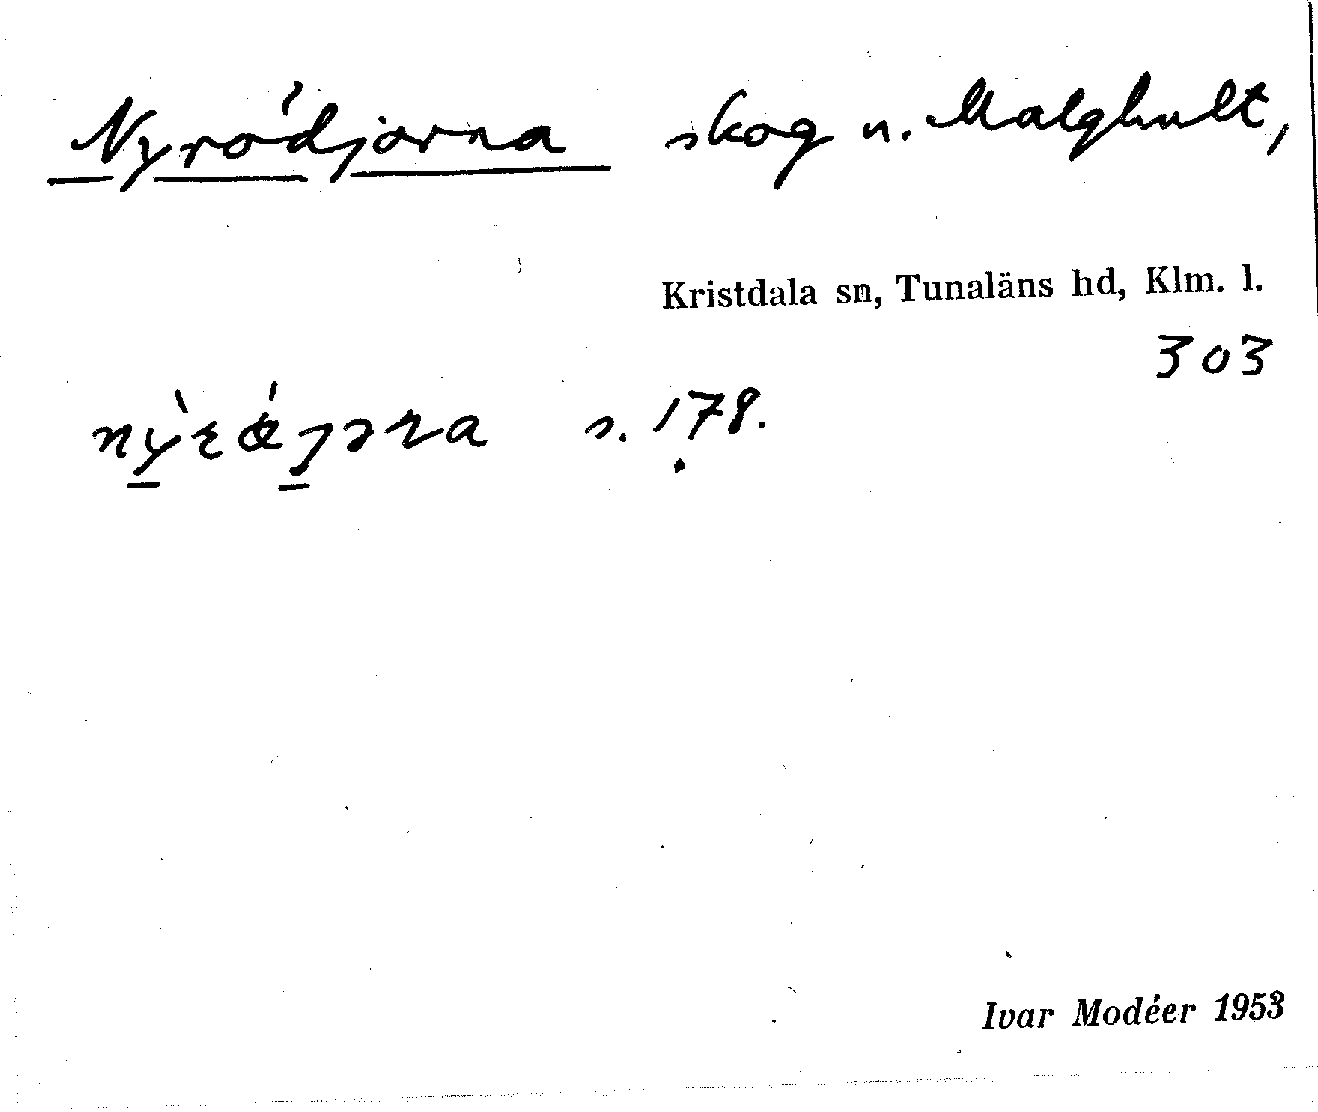 Nyródjorna skog n. Malghult,
Kristdala sn, Tunaläns hd, Klm. l.
303
s. 178.
Ivar Modéer 1953